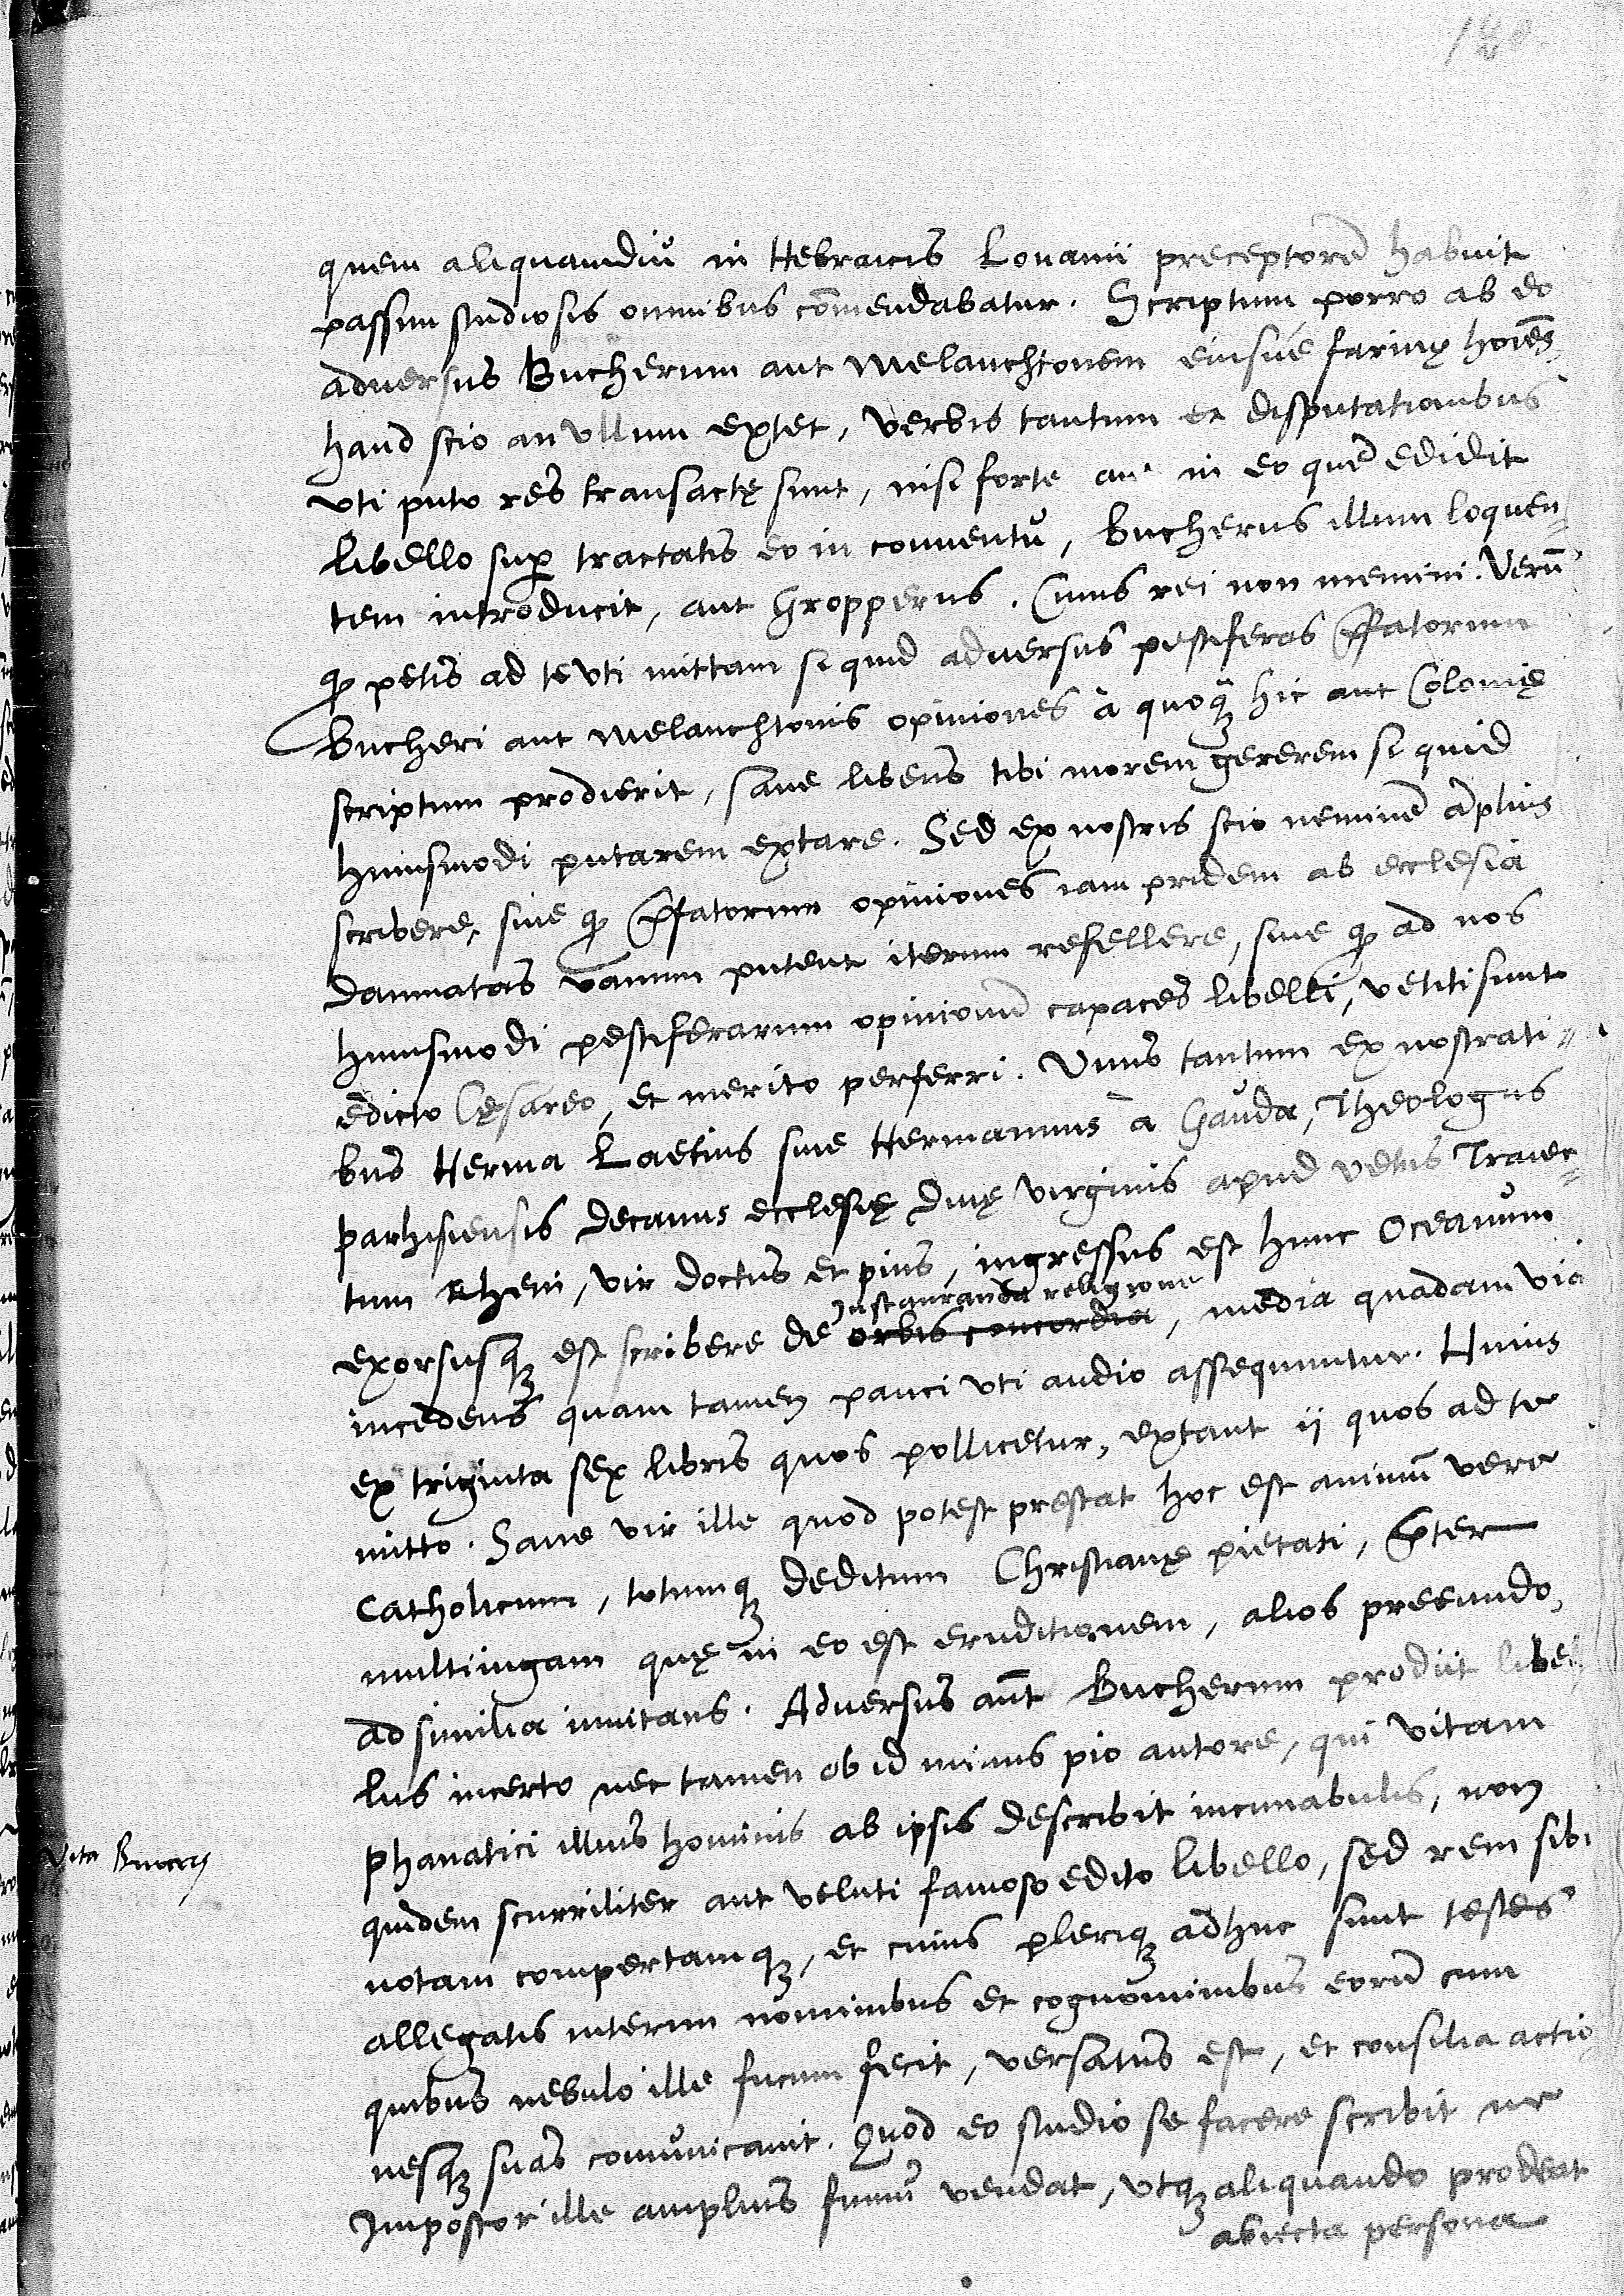 quem aliquamdiu in Hebraicis Louanii preceptorē habuit
passim studiosis omnibus cōmendabatur. Scriptum porro ab eo
aduersus Bucherum aut Melanchtonem eiusue farinę hoīes,
haud scio an vllum extet, verbis tantum et disputationibus
vti puto res transactę sunt, nisi forte aū in eo quē edidit
libello sup tractatis eo in conuentu, Bucherus illum loquen=
tem introducit, aut Gropperus. Cuius rei non memini. Verū
qđ petis ad te vti mittam si quid aduersus pestiferas p̄fatorum
Bucheri aut Melanchtonis opiniones à quoq3 hic aut Colonię
scriptum prodierit, sane libens tibi morem gererem si quid
huiusmodi putarem extare. Sed ex nostris scio neminē āplius
scribere, siue qđ p̄fatorum opiniones iam pridem ab ecclesia
damnatas vanum putent iterum refellere, siue qđ ad nos
huiusmodi pestiferarum opinionū capaces libelli, vetiti sunt
edicto Cęsareo, et merito perferri. Vnus tantum ex nostrati=
bus Herma Laetius siue Hermannus à Gauda, Theologus
parhisiensis decanus ecclesię Diuę virginis apud vetus Traiec=
tum Rheni, vir doctus et pius, ingressus est hunc Oceanum
Instauranda religione
exorsusq3 est scribere de orbis concordia, media quadam via
incedens quam tamen pauci vti audio assequuntur. Huius
ex triginta sex libris quos pollicetur, extant ij quos ad te
mitto. Sane vir ille quod potest prestat hoc est animū vere
catholicum, totumq3 deditum Christianę pietati, p̄ter
multiiugam quę in eo est eruditionem, alios preeundo,
ad similia inuitans. Aduersus aūt Bucherum prodiit libel
lus incerto nec tamen ob id minus pio autore, qui vitam
phanatici illius hominis ab ipsis describit incunabulis, non
Vita Buceri
quidem scurriliter aut veluti famoso edito libello, sed rem sibi
notam compertamq3, et cuius pleriq3 adhuc sunt testes
allegatis interim nominibus et cognominibus eorū cum
quibus nebulo ille fucum fecit, versatus est, et consilia actio
nesq3 suas comunicauit. Quod eo studio se facere scribit ne
Impostor ille amplius fumū vendat, vtq3 aliquando prodeat
abiecta persona